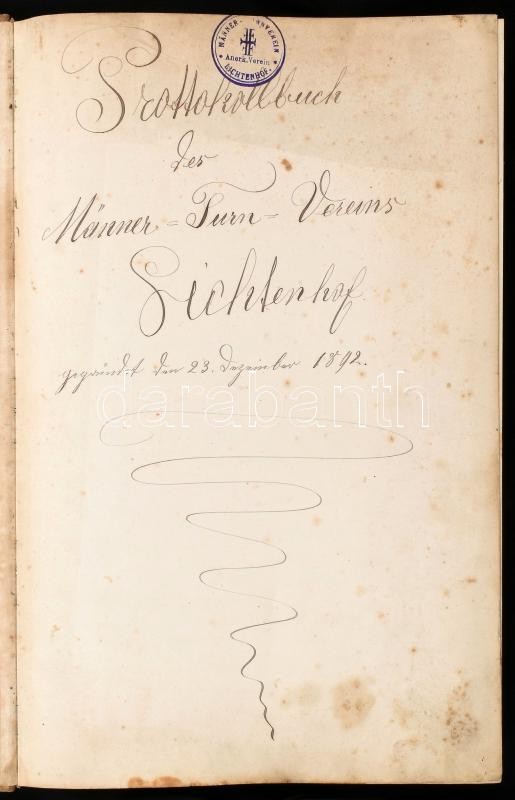 MÄNNER-TURNVEREIN
Anerk. Verein
LICHTENHOF.
Prottokollbuch
des
Männer = Turn = Vereins
Lichtenhof.
gegründet den 23. Dezember 1892.
darabanth